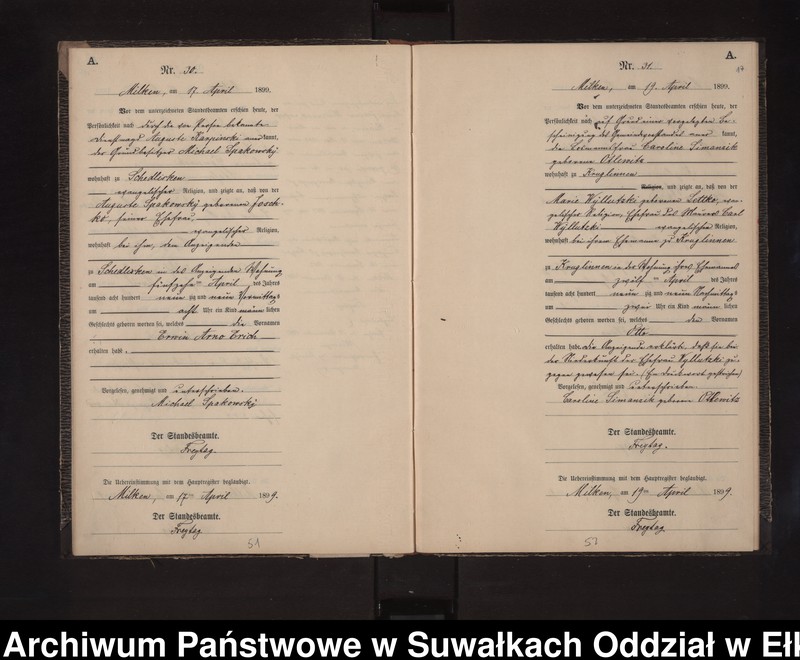 A.
Nr. 30.
Milken, am 17 April 1899.
Vor dem unterzeichneten Standesbeamten erschien heute, der
Persönlichkeit nach durch die von Person bekannte
Auguste Karpinski kannt,
der Grundbesitzer Michael Spakowsky
wohnhaft zu Schedlisken
evangelischer Religion, und zeigte an, daß von der
Auguste Spakowsky geborenen Josch-
ko, seiner Ehefrau,
evangelischer Religion,
wohnhaft bei ihm, dem Anzeigenden
zu Schedlisken in des Anzeigenden Wohnung
am fünfzehnten April des Jahres
tausend acht hundert neunzig und neun Vormittags
um acht Uhr ein Kind männlichen
Geschlechts geboren worden sei, welches die Vornamen
Erwin Arno Erich
erhalten habe.
Vorgelesen, genehmigt und unterschrieben.
Michael Spakowsky
Der Standesbeamte.
Freytag
Die Uebereinstimmung mit dem Hauptregister beglaubigt.
Milken, am 17ten April 1899.
Der Standesbeamte.
Freytag
51
A.
Nr. 31.
Milken, am 19 April 1899.
Vor dem unterzeichneten Standesbeamten erschien heute, der
Persönlichkeit nach auf Grund einer vorgelegten Be-
scheinigung des Gemeindevorstandes aner kannt,
die Losmannsfrau Caroline Simanzik
geborene Otlewitz
wohnhaft zu Kruglinnen
Religion, und zeigte an, daß von der
Marie Wyllutzki geborenen Lettko, evan-
gelischer Religion, Ehefrau des Maurers Carl
Wyllutzki evangelischer Religion,
wohnhaft bei ihrem Ehemanne zu Kruglinnen
zu Kruglinnen in der Wohnung ihres Ehemannes
am zwölften April des Jahres
tausend acht hundert neunzig und neun Nachmittags
um zwei Uhr ein Kind männlichen
Geschlechts geboren worden sei, welches den Vornamen
Otto
erhalten habe. die Anzeigende erklärte, daß sie bei
der Niederkunft der Ehefrau Wyllutzki zu-
gegen gewesen sei. (Ein Druckwort gestrichen)
Vorgelesen, genehmigt und unterschrieben.
Caroline Simanzik geborene Otlewitz
Der Standesbeamte.
Freytag.
Die Uebereinstimmung mit dem Hauptregister beglaubigt.
Milken, am 19ten April 1899.
Der Standesbeamte.
Freytag
Archiwum Państwowe w Suwałkach Oddział w Ełk